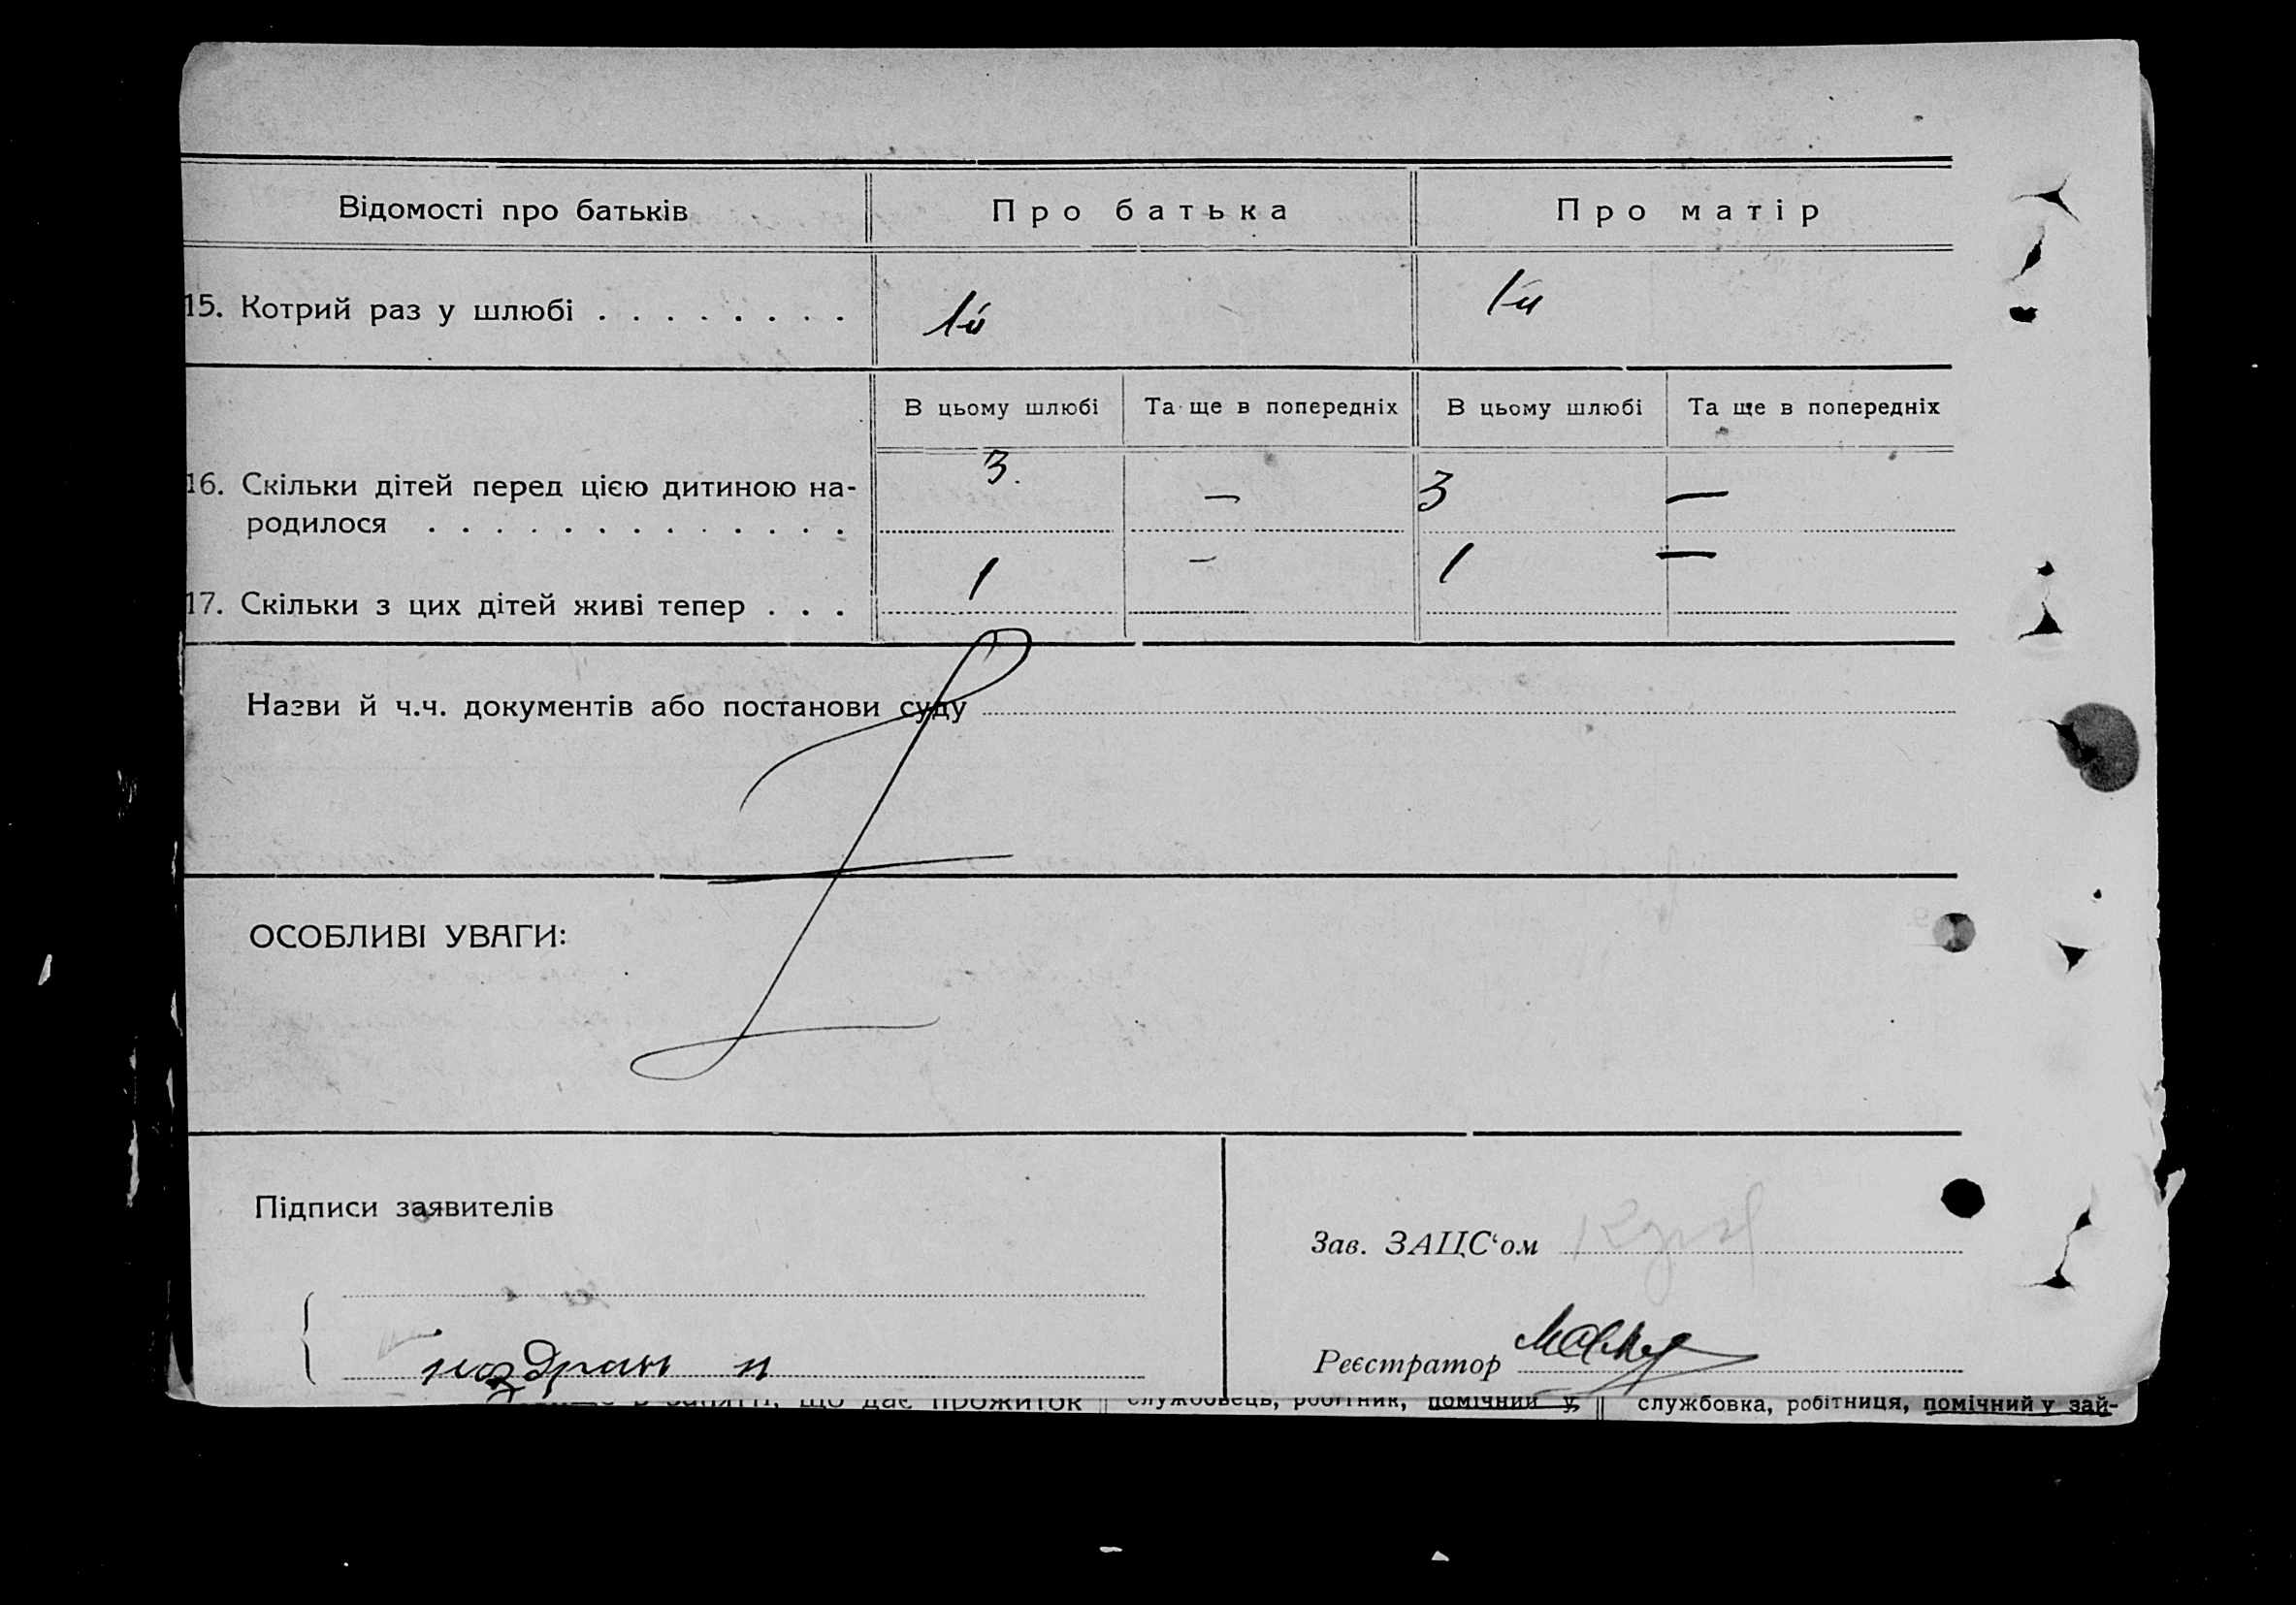 Відомості про батьків Про батька Про матір
15. Котрий раз у шлюбі . . . . . . . . 1й 1й
В цьому шлюбі Та ще в попередніх В цьому шлюбі Та ще в попередніх
16. Скільки дітей перед цією дитиною на- 3. — 3 —
родилося . . . . . . . . . . . . . .
17. Скільки з цих дітей живі тепер . . . 1 — 1 —
Назви й ч.ч. документів або постанови суду
ОСОБЛИВІ УВАГИ:
Підписи заявителів
Зав. ЗАЦС‘ом
Реєстратор
що дає прожиток службовець, робітник, помічний у службовка, робітниця, помічний у зай-